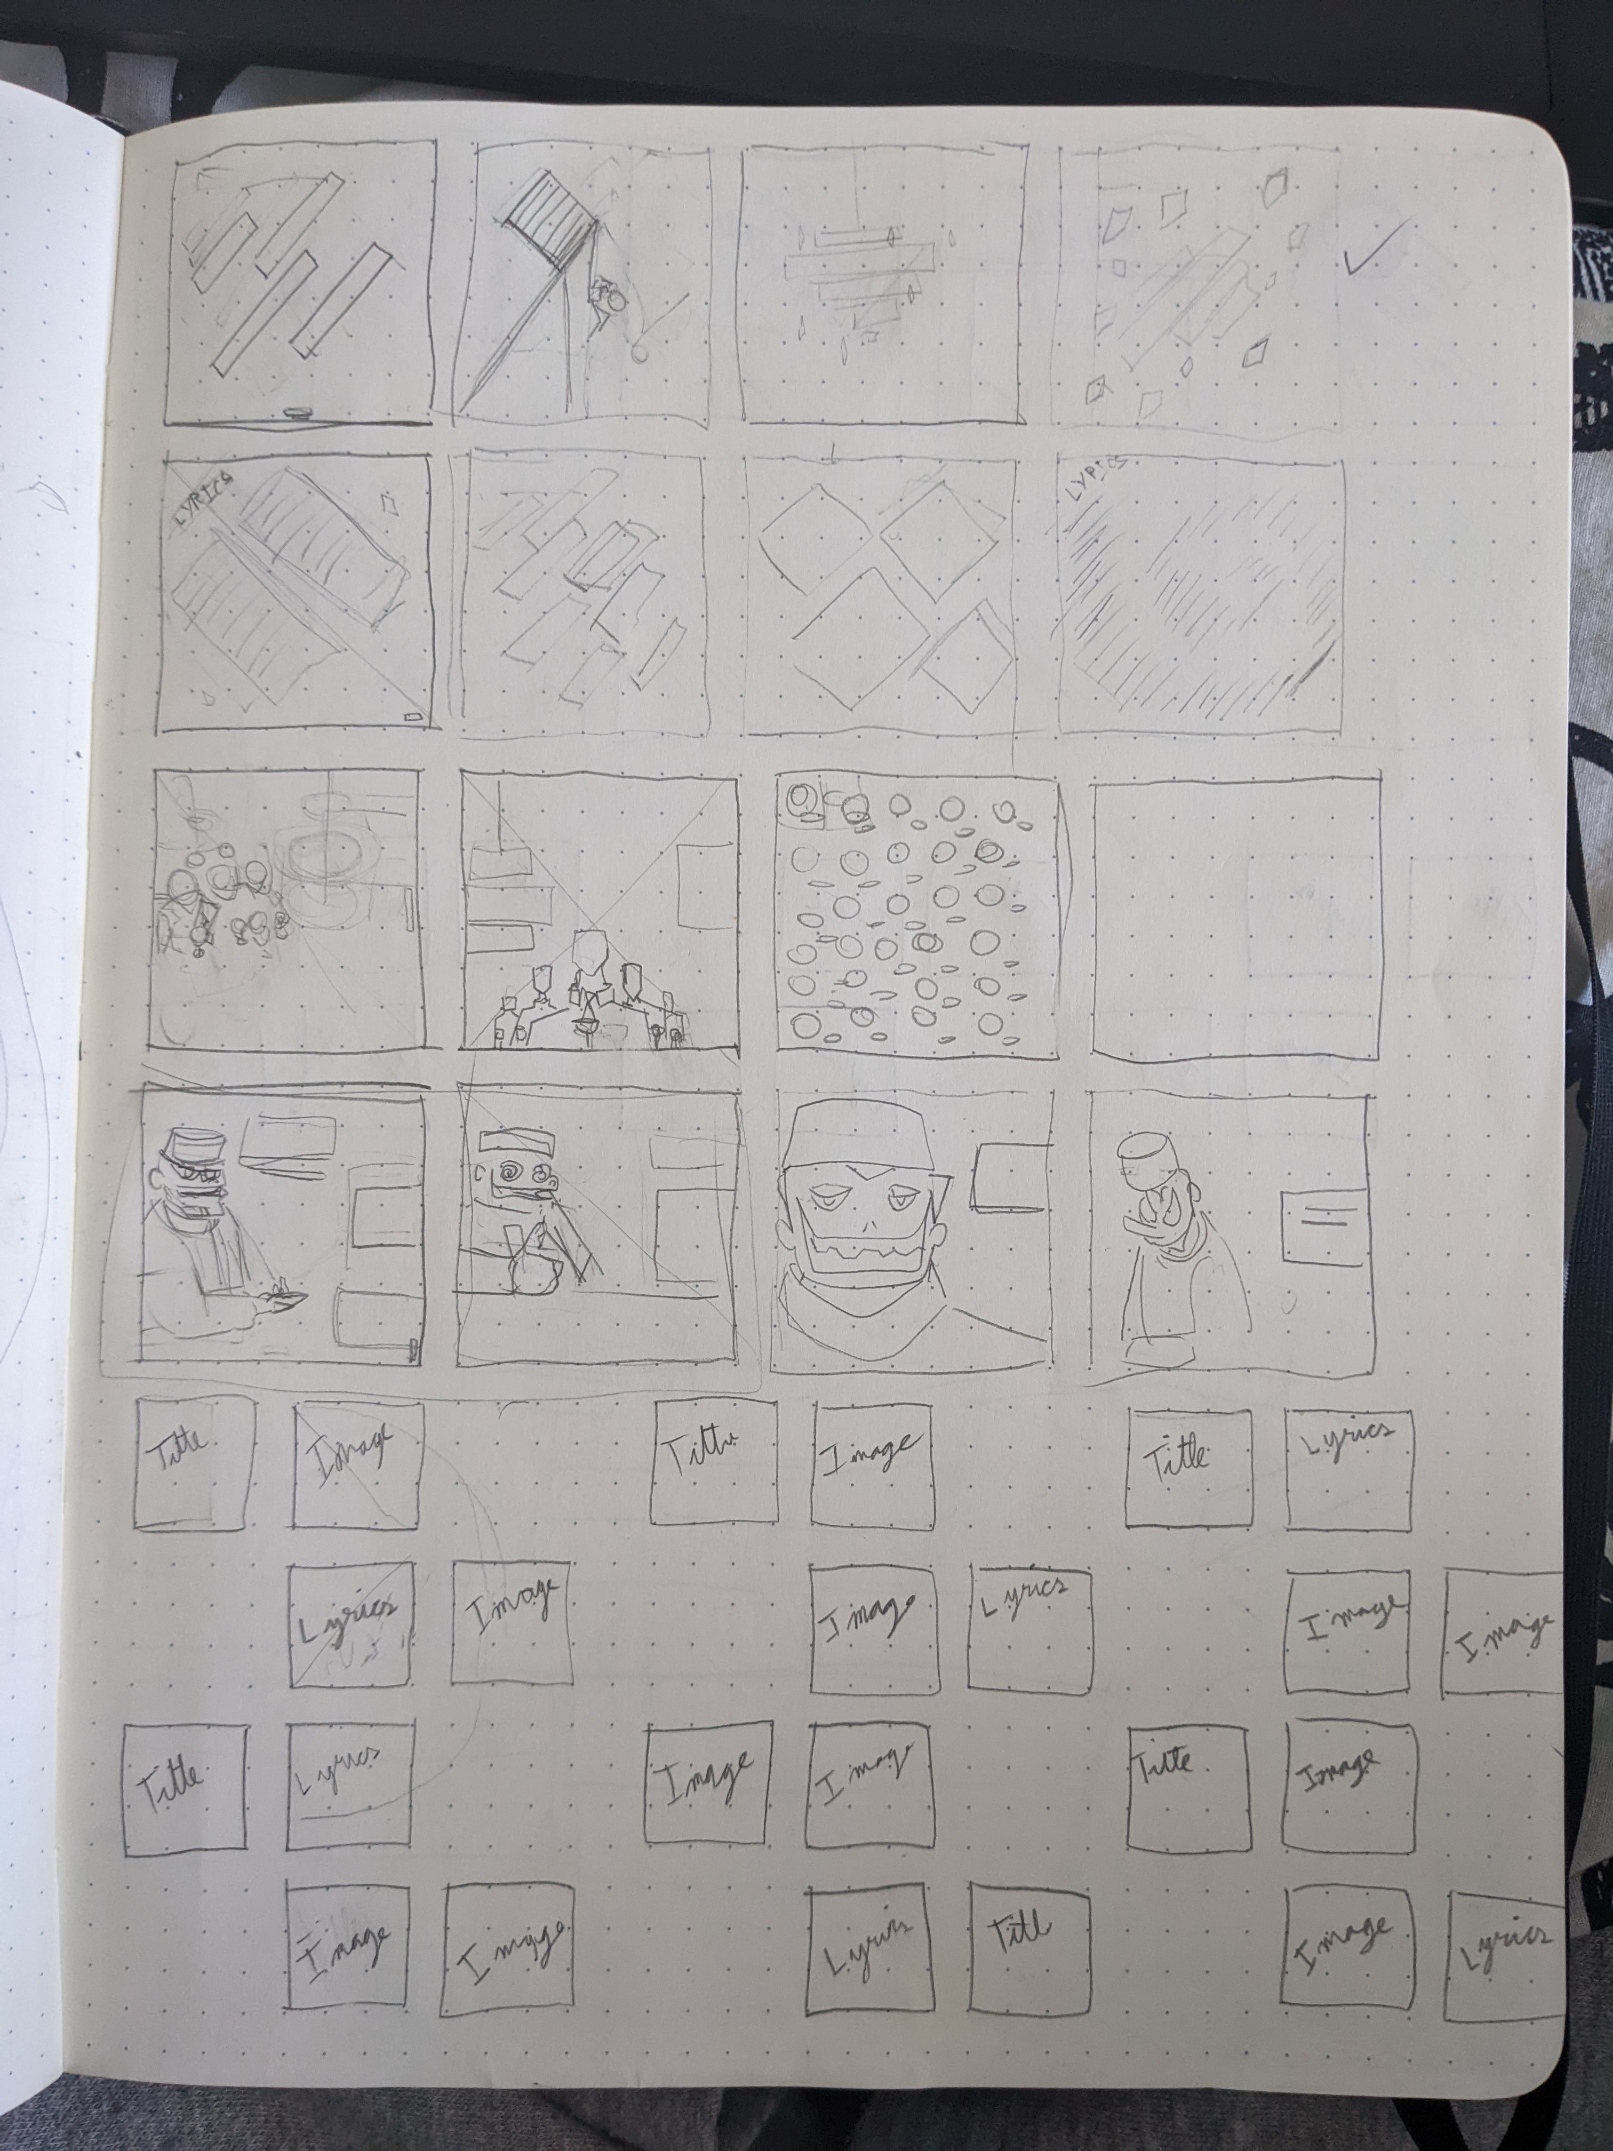 LYRICS
LYRICS
Title
Image
Title
Image
Title
Lyrics
Lyrics
Image
Image
Lyrics
Image
Image
Title
Lyrics
Image
Image
Title
Image
Image
Image
Lyrics
Titl
Image
Lyrics